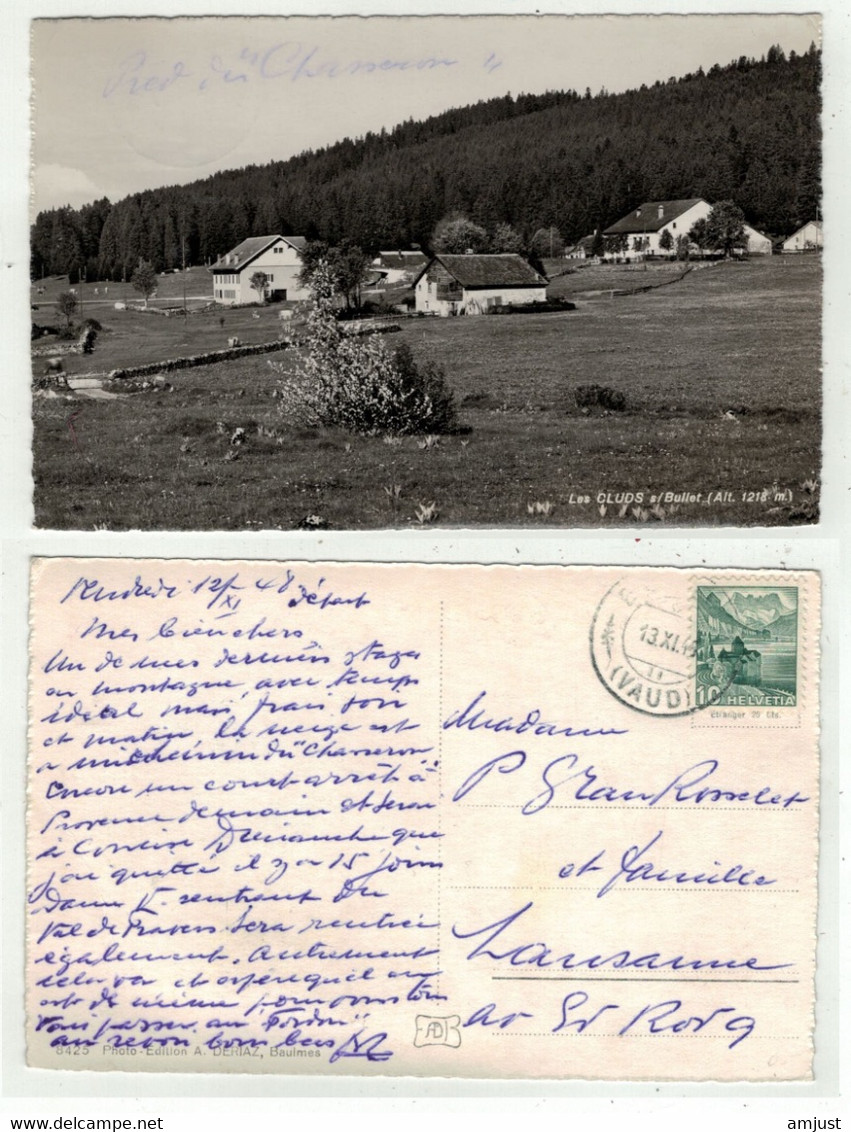 Pied du "Chasseron"
Les CLUDS s/Bullet (Alt. 1218 m.)
Vendredi 12/XI 48 départ
Mes bien chers
Un de mes derniers stages
en montagne avec temps
idéal mais frais soir
et matin la neige est
au "Chasseron"
Encore un court arrêt à
Provence demain et serai
à Concise Dimanche que
j'ai quitté il y a 15 jours
rentrent du
Val de Travers sera rentrée
également. Autrement
cela va et espère qu'il en
est de même pour vous tous
au revoir bons bais
8425 Photo-Edition A. DÉRIAZ, Baulmes
AD
13.XI.48
(VAUD)
10 HELVETIA
Madame
P Gran Rosselet
et famille
Lausanne